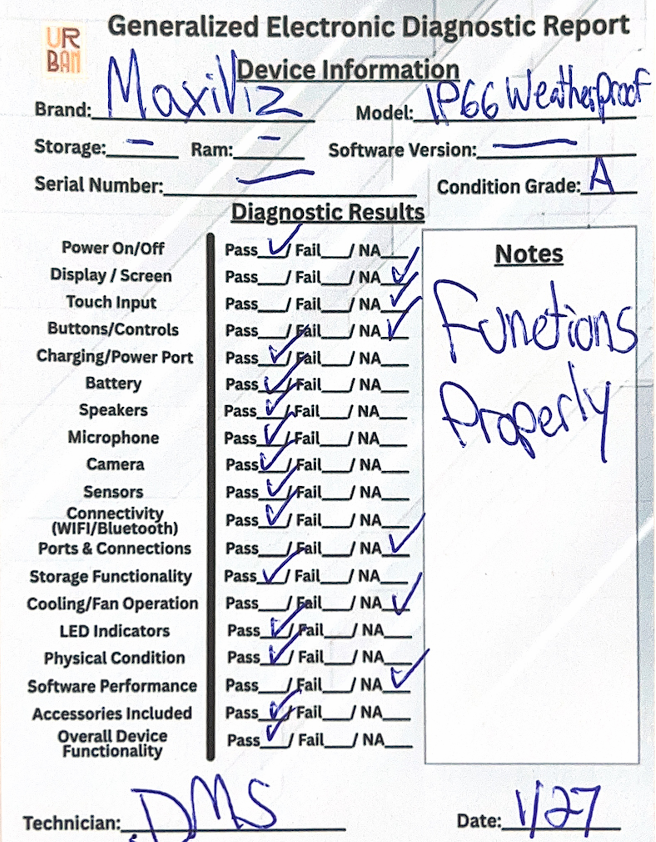 URBAN
Generalized Electronic Diagnostic Report
Device Information
Brand: MaxiViz Model: IP66 Weatherproof
Storage: — Ram: — Software Version: —
Serial Number: — Condition Grade: A
Diagnostic Results
Notes
Functions
Properly
Power On/Off Pass ✓ / Fail___/ NA___
Display / Screen Pass___/ Fail___/ NA ✓
Touch Input Pass___/ Fail___/ NA ✓
Buttons/Controls Pass___/ Fail___/ NA ✓
Charging/Power Port Pass ✓ / Fail___/ NA___
Battery Pass ✓ / Fail___/ NA___
Speakers Pass ✓ / Fail___/ NA___
Microphone Pass ✓ / Fail___/ NA___
Camera Pass ✓ / Fail___/ NA___
Sensors Pass ✓ / Fail___/ NA___
Connectivity
(WIFI/Bluetooth) Pass ✓ / Fail___/ NA___
Ports & Connections Pass___/ Fail___/ NA ✓
Storage Functionality Pass ✓ / Fail___/ NA___
Cooling/Fan Operation Pass___/ Fail___/ NA ✓
LED Indicators Pass ✓ / Fail___/ NA___
Physical Condition Pass ✓ / Fail___/ NA___
Software Performance Pass___/ Fail___/ NA ✓
Accessories Included Pass ✓ / Fail___/ NA___
Overall Device
Functionality Pass ✓ / Fail___/ NA___
Technician: DMS Date: 1/27